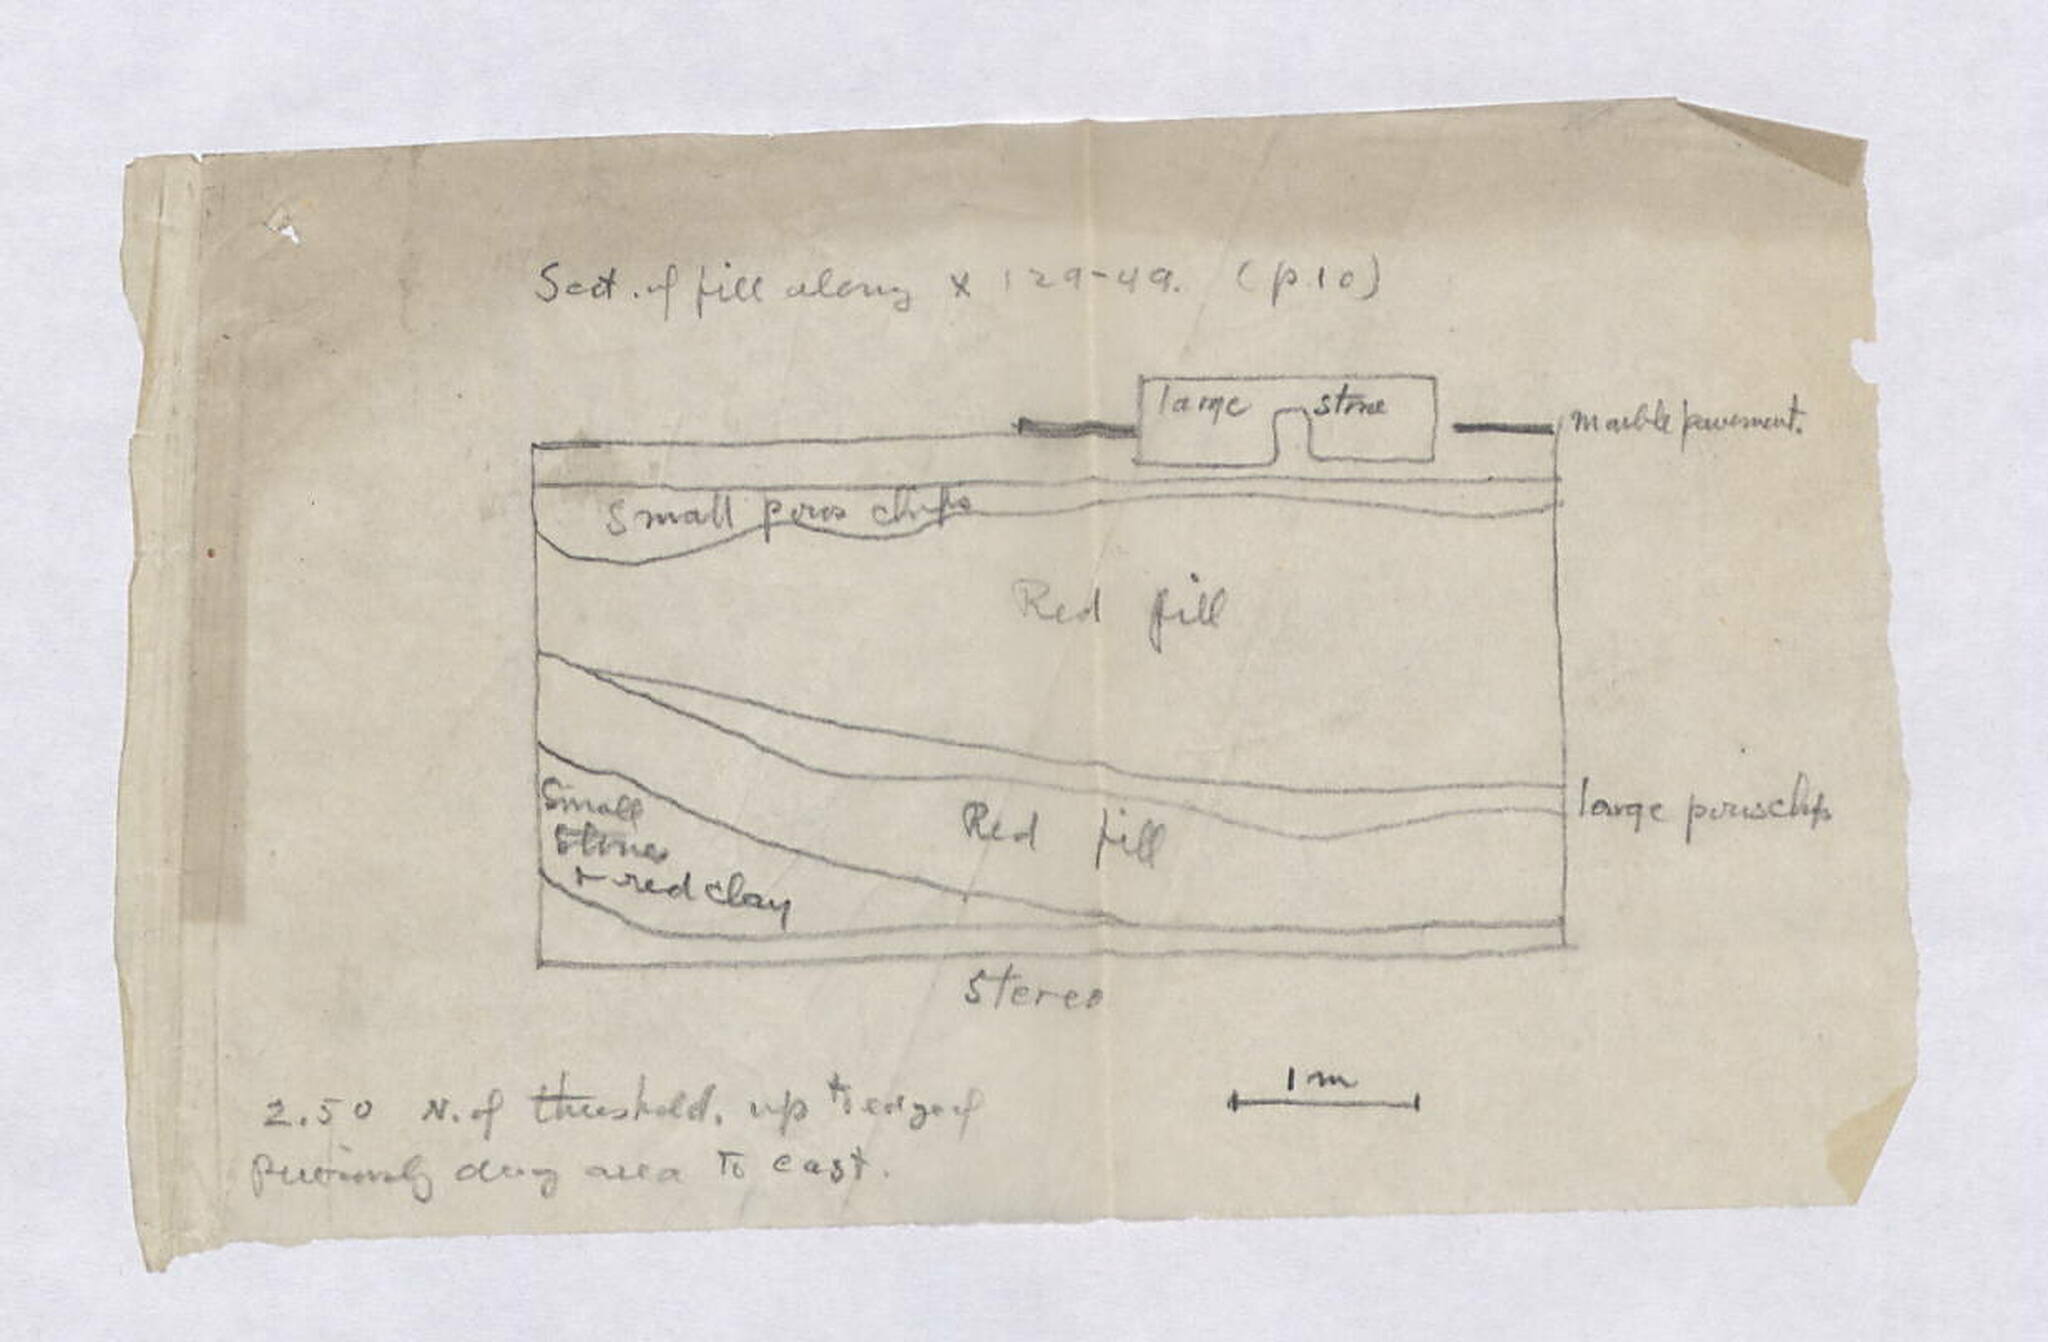 Sect. of fill along x 129-49. (p.10)
large stone
Marble pavement.
Small poros chips
Red fill
large poros chips
Red fill
Small
Stones
+ red clay
Stereo
1 m
2.50 N. of threshold, up to edge of
previously dug area to east.